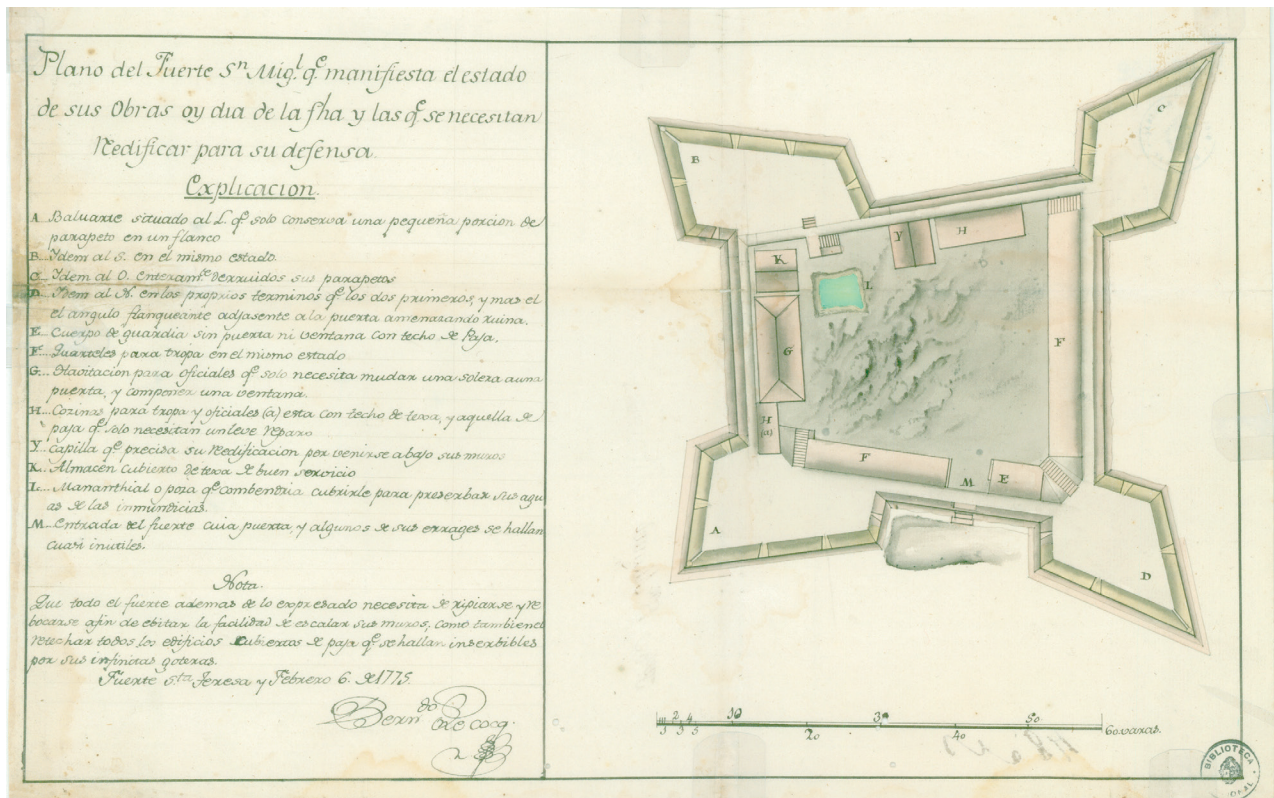 Plano del Fuerte Sn Migl. qe. manifiesta el estado
de sus Obras oy dia de la fha y las qe. se necesitan
Redificar para su defensa.
Explicacion.
A Baluarte situado al L. qe. solo conserva una pequeña porcion de
parapeto en un flanco
B... Ydem al S. en el mismo estado.
C... Ydem al O. enteramte. derruidos sus parapetos
D... Ydem al N. en los proprios terminos qe. los dos primeros, y mas el
el angulo flanqueante adjasente a la puerta amenazando ruina.
E... Cuerpo de guardia sin puerta ni ventana con techo de Paja.
F... Quarteles para tropa en el mismo estado
G... Havitacion para oficiales qe. solo necesita mudar una solera a una
puerta, y componer una ventana.
H... Cozinas para tropa y oficiales (a) esta con techo de texa, y aquella de
paja qe. solo necesitan un leve reparo
Y... Capilla qe. precisa su Redificacion por venirse abajo sus muros
K... Almacén cubierto de texa de buen servicio
L... Mananthial o poza qe. combendria cubrirle para preserbar sus agu
as de las inmundicias.
M... Entrada del fuerte cuia puerta, y algunos de sus errages se hallan
cuasi inutiles.
Nota.
Que todo el fuerte ademas de lo expresado necesita de ripiarse y re
bocarse afin de ebitar la facilidad de escalar sus muros; como tambien el
retechar todos los edificios cubiertos de paja qe. se hallan inserbibles
por sus infinitas goteras.
Fuerte Sta Teresa y Febrero 6. de 1775.
Berndo Lecocq.
B
C
K
Y
H
L
G
F
H
(a)
F
M
E
A
D
2 4 10 30 50
1 3 5 20 40 60 varas.
BIBLIOTECA